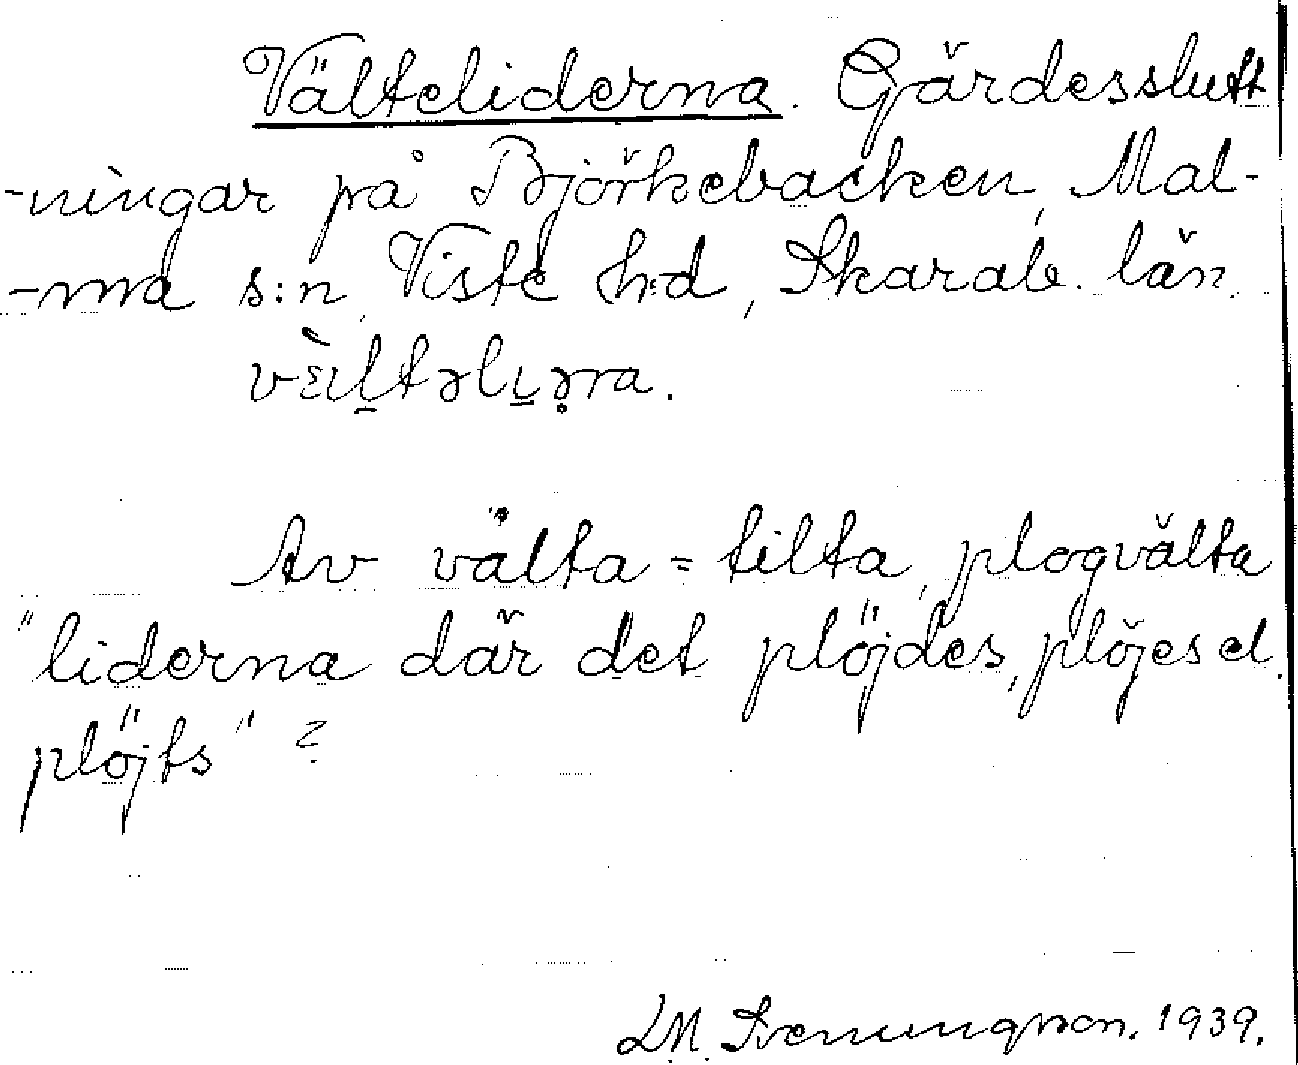 Välteliderna. Gärdesslutt
-ningar på Björkebacken, Mal-
-ma s:n, Viste h:d, Skarab. län.
Av välta = tilta, plogvälta
"liderna där det plöjdes, plöjes el.
plöjts" ?
1939.